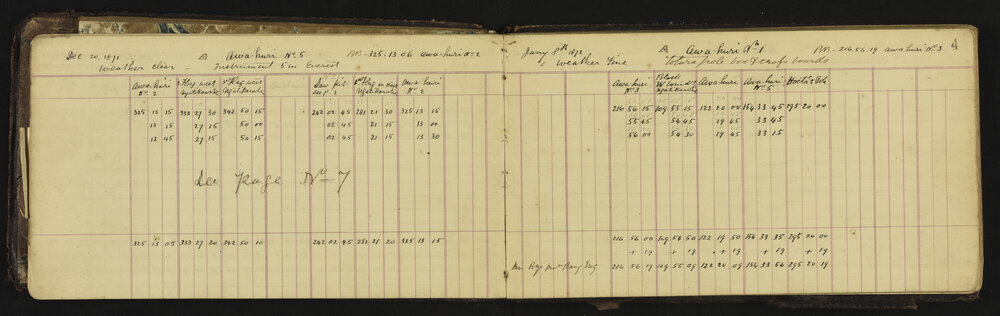 Dec 20. 1871 Δ Awahuri No. 5 BB - 325.13.06 awahuri No 2
Weather clear Instrument 5 in Everest
Awahuri No. 2 2nd Flag west 3rd Flag west Awahuri No. 2
325 13 15 333 27 30 342 50 15 242 02 45 281 21 30 325 13 15
13 15 27 15 50 00 02 45 21 15 13 00
12 45 27 15 50 15 02 45 21 15 13 30
See Page No 7
325 13 05 333 27 20 342 50 10 242 02 45 281 21 20 325 13 15
Jany 8th 1872 Δ Awahuri No. 1 BB - 216.56.19 awahuri No 3 4
Weather Fine Totara pole box & cross boards
Awahuri No 3 Block Awahuri Awahuri No 5
216 56 15 109 55 15 122 20 00 154 33 45 295 20 00
55 45 54 45 19 45 33 45
56 00 54 30 19 45 33 15
216 56 00 109 54 50 122 19 50 154 33 35 295 20 00
+ 19 + 19 + 19 + 19 + 19
216 56 19 109 55 09 122 20 09 154 33 54 295 20 19